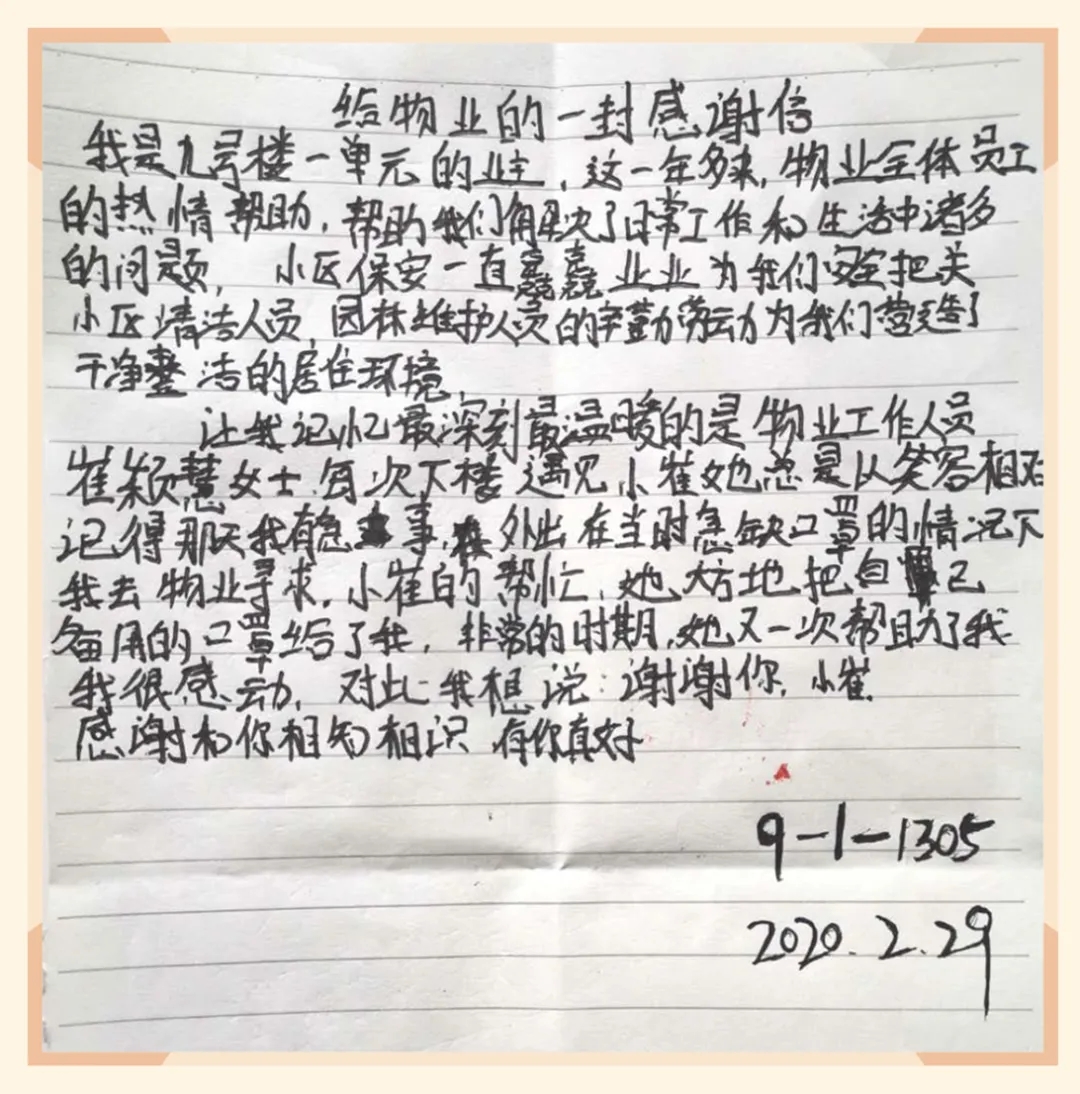 给物业的一封感谢信
我是九号楼一单元的业主，这一年多来，物业全体员工
的热情帮助，帮助我们解决了日常工作和生活中诸多
的问题， 小区保安一直兢兢业业为我们安全把关
小区清洁人员，园林维护人员的辛勤劳动为我们营造了
干净整洁的居住环境，
让我记忆最深刻最温暖的是物业工作人员
崔颖慧女士，每次下楼遇见小崔她总是以笑容相对
记得那天我有急事，外出在当时急缺口罩的情况下
我去物业寻求，小崔的帮忙，她大方地把自己
备用的口罩给了我，非常的时期，她又一次帮助了我
我很感动，对此我想说：谢谢你，小崔
感谢和你相知相识 有你真好
9-1-1305
2020.2.29